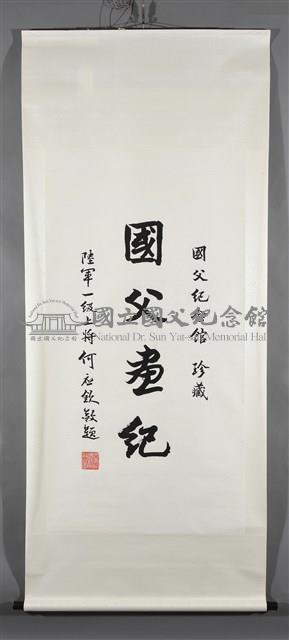 國父紀館 珍藏
國父画紀
陸軍一級上將何應欽敬題
國立國父紀念館
National Dr. Sun Yat-sen Memorial Hall